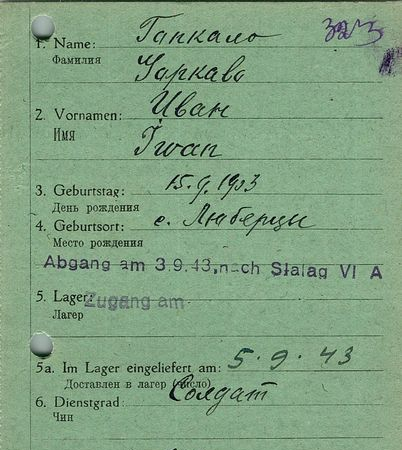 Гапкало
323
1. Name:
Фамилия
2. Vornamen: Иван
Имя Iwan
3. Geburtstag: 15.9.1903
День рождения
4. Geburtsort: с. Люберцы
Место рождения
Abgang am 3.9.43, nach Stalag VI A
5. Lager: Zugang am
Лагер
5a. Im Lager eingeliefert am: 5.9.43
Доставлен в лагер (число)
6. Dienstgrad: Солдат
Чин